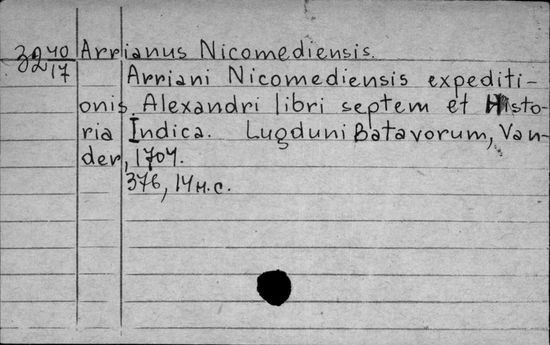 32 40/17 Arrianus Nicomediensis.
Arriani Nicomediensis expediti-
onis Alexandri libri septem et Histo-
ria Indica. Lugduni Batavorum, Van-
der, 1704.
376, 14 н.с.